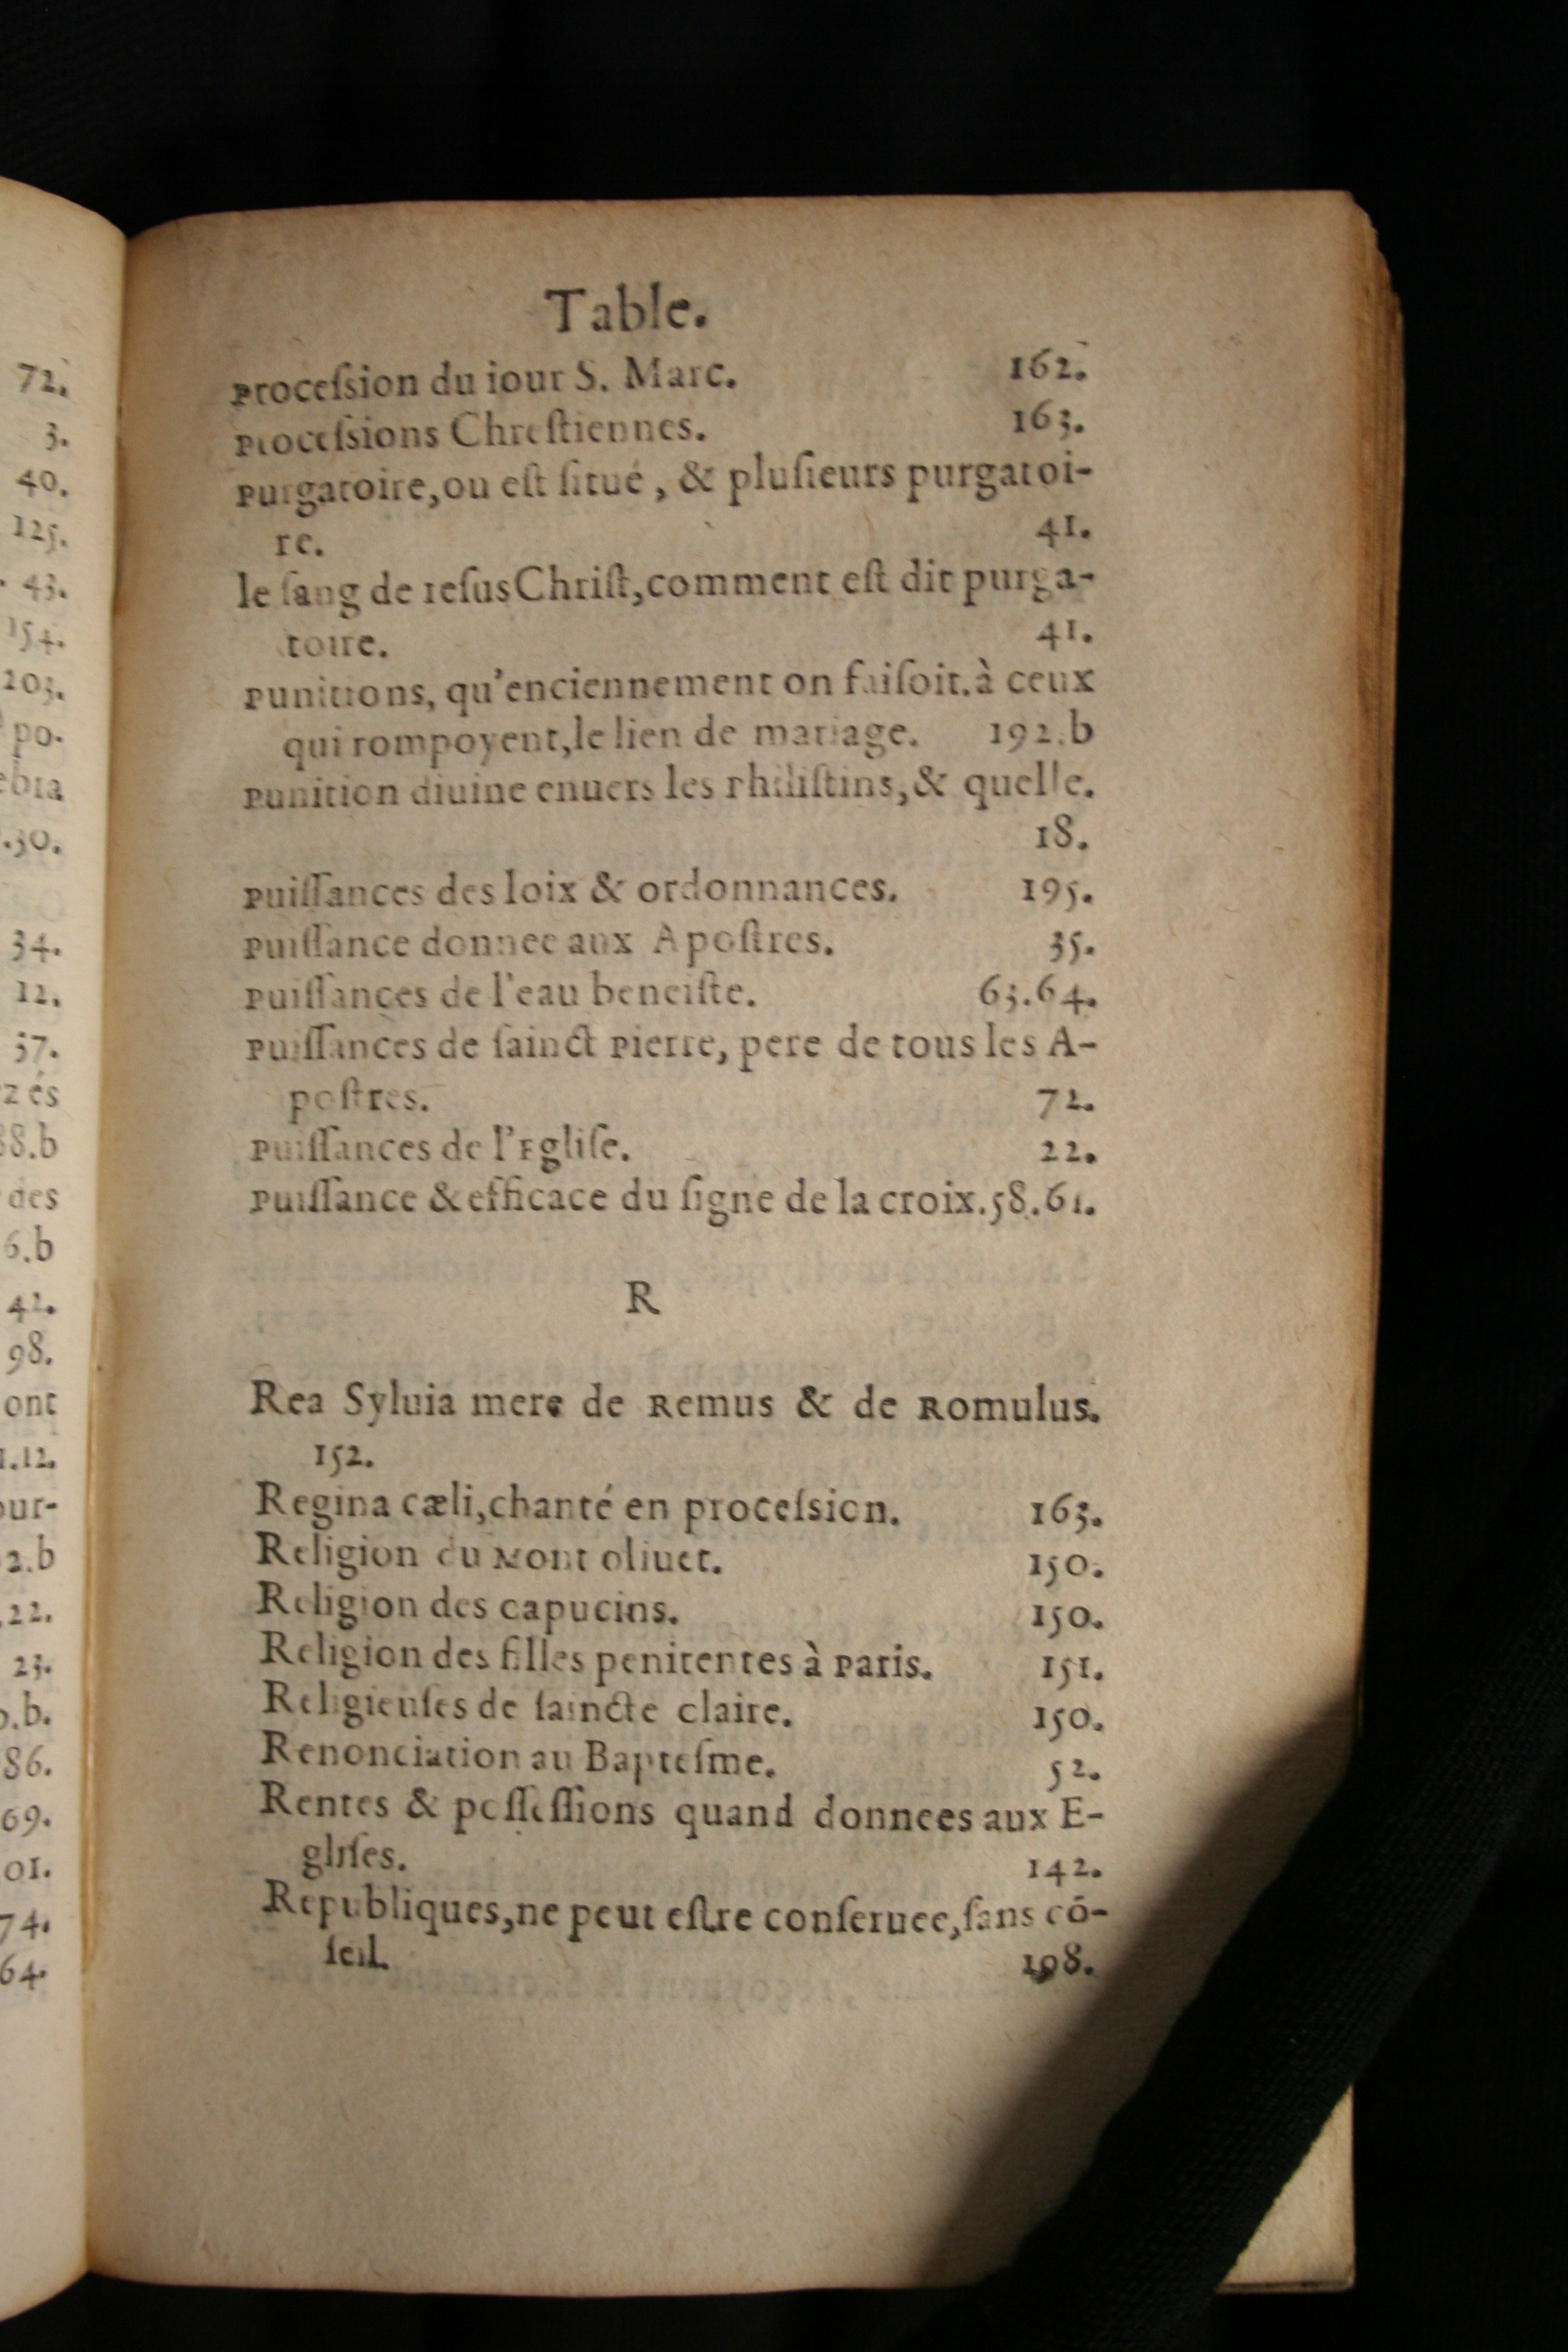 Table.
Proceſsion du iour S. Marc. 162.
Proceſsions Chreſtiennes. 163.
Purgatoire, ou eſt ſitué, & pluſieurs purgatoi-
re. 41.
le ſang de Ieſus Chriſt, comment eſt dit purga-
toire. 41.
Punitions, qu'enciennement on faiſoit. à ceux
qui rompoyent, le lien de mariage. 192.b
Punition diuine enuers les Philiſtins, & quelle.
18.
Puiſſances des loix & ordonnances. 195.
Puiſſance donnee aux Apoſtres. 35.
Puiſſances de l'eau beneiſte. 63.64.
Puiſſances de ſainct Pierre, pere de tous les A-
poſtres. 72.
Puiſſances de l'Egliſe. 22.
Puiſſance & efficace du ſigne de la croix. 58.61.
R
Rea Syluia mere de Remus & de Romulus.
152.
Regina cæli, chanté en proceſsion. 163.
Religion du Mont oliuet. 150.
Religion des capucins. 150.
Religion des filles penitentes à Paris. 151.
Religieuſes de ſaincte claire. 150.
Renonciation au Bapteſme. 52.
Rentes & poſſeſſions quand donnees aux E-
gliſes. 142.
Republiques, ne peut eſtre conſeruee, ſans cō-
ſeil. 198.
72.
3.
40.
125.
43.
154.
203.
po.
ebra
.30.
34.
12.
37.
z és
88.b
des
6.b
42.
98.
ont
1.12.
our-
2.b
22.
23.
.b.
86.
69.
01.
74.
64.